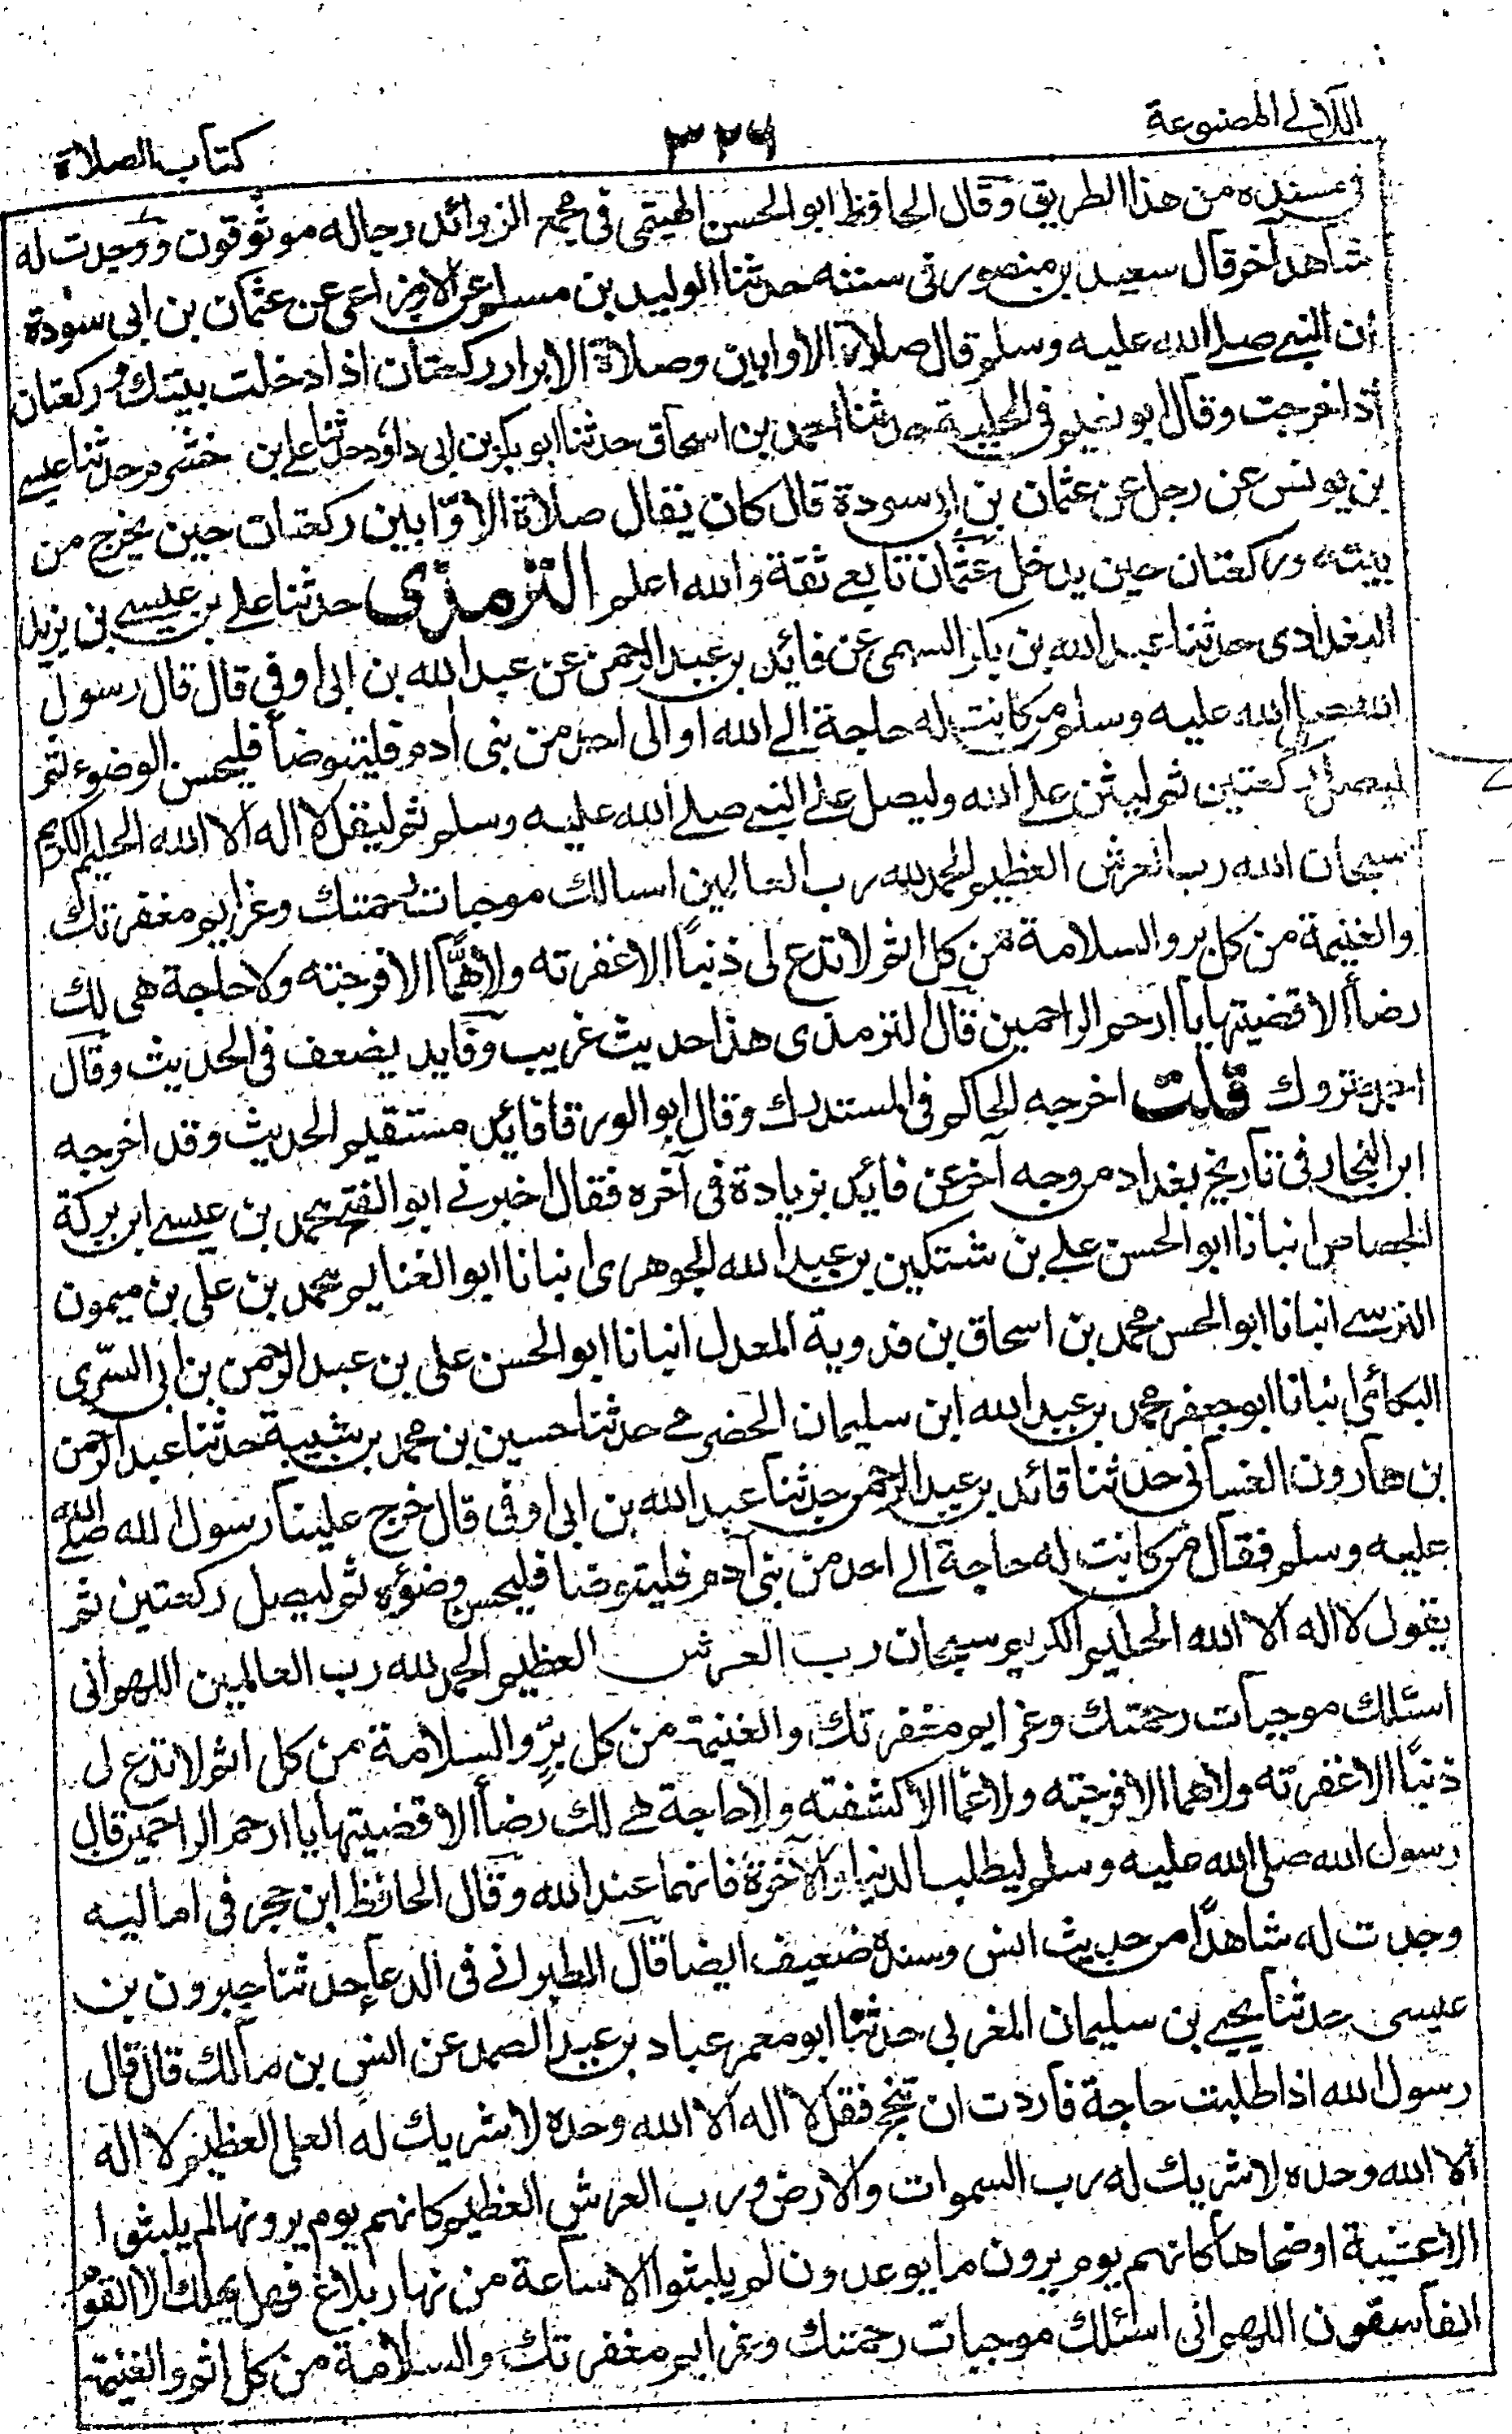 اللآلي المصنوعة
٣٢٦
كتاب الصلاة
في مسنده من هذا الطريق وقال الحافظ ابو الحسن الهيتمي في مجمع الزوائد رجاله موثوقون ووجدت له
شاهدا آخر قال سعيد بن منصور في سننه حدثنا الوليد بن مسلم عن الاوزاعي عن عثمان بن ابي سودة
ان النبي صلى الله عليه وسلم قال صلاة الاوابين وصلاة الابرار ركعتان اذا دخلت بيتك وركعتان
اذا خرجت وقال ابو نعيم في الحلية حدثنا احمد بن اسحاق حدثنا ابو بكر بن ابي داود حدثنا علي بن خشرم حدثنا عيسى
بن يونس عن رجل عن عثمان بن ابي سودة قال كان يقال صلاة الاوّابين ركعتان حين يخرج من
بيته وركعتان حين يدخل عثمان تابعي ثقة والله اعلم الترمذى حدثنا علي بن عيسى بن يزيد
البغدادى حدثنا عبد الله بن بكر السهمى عن فائد بن عبد الرحمن عن عبد الله بن ابى اوفى قال قال رسول
الله صلى الله عليه وسلم من كانت له حاجة الى الله او الى احد من بنى آدم فليتوضأ فليحسن الوضوء ثم
ليصل ركعتين ثم ليثن على الله وليصل على النبي صلى الله عليه وسلم ثم ليقل لا اله الا الله الحليم الكريم
سبحان الله رب العرش العظيم الحمد لله رب العالمين اسالك موجبات رحمتك وعزايم مغفرتك
والغنيمة من كل بر والسلامة من كل اثم لا تدع لى ذنبًا الا غفرته ولا همًّا الا فرجته ولا حاجة هى لك
رضاً الا قضيتها يا ارحم الراحمين قال الترمذى هذا حديث غريب وفايد يضعف فى الحديث وقال
احمد متروك قلت اخرجه الحاكم فى المستدرك وقال ابو الورقا فائد مستقيم الحديث وقد اخرجه
ابن النجار فى تاريخ بغداد من وجه آخر عن فائد بزيادة فى آخره فقال اخبرنى ابو الفتح محمد بن عيسى ابن بركة
الجصاص انبانا ابو الحسن على بن شتكين بن عبد الله الجوهرى انبانا ابو الغنايم محمد بن على بن ميمون
النرسى انبانا ابو الحسن محمد بن اسحاق بن فدوية المعدل انبانا ابو الحسن على بن عبد الرحمن بن ابى السرّى
البكائى انبانا ابو جعفر محمد بن عبد الله ابن سليمان الحضرمى حدثنا حسين بن محمد بن شيبة حدثنا عبد الرحمن
بن هارون الغسانى حدثنا قائد بن عبد الرحمن حدثنا عبد الله بن ابى اوفى قال خرج علينا رسول الله صلى الله
عليه وسلم فقال من كانت له حاجة الى احد من بنى آدم فليتوضا فليحسن وضوءه ثم ليصل ركعتين ثم
يقول لا اله الا الله الحليم الكريم سبحان رب العرش العظيم الحمد لله رب العالمين اللهم انى
اسئلك موجبات رحمتك وعزايم مغفرتك والغنيمة من كل برٍّ والسلامة من كل اثم لا تدع لى
ذنبًا الا غفرته ولا هما الا فرجته ولا غما الا كشفته ولا حاجة هى لك رضاً الا قضيتها يا ارحم الراحمين قال
رسول الله صلى الله عليه وسلم ليطلب الدنيا والآخرة فانهما عند الله وقال الحافظ ابن حجر فى اماليه
وجدت له شاهدًا من حديث انس وسنده ضعيف ايضا قال الطبرانى فى الدعاء حدثنا جبرون بن
عيسى حدثنا يحيى بن سليمان المغربى حدثنا ابو معمر عباد بن عبد الصمد عن انس بن مالك قال قال
رسول الله اذا طلبت حاجة فاردت ان تنجح فقل لا اله الا الله وحده لا شريك له العلى العظيم لا اله
الا الله وحده لا شريك له رب السموات والارض ورب العرش العظيم كانهم يوم يرونها لم يلبثوا ا
الا عشية او ضحاها كانهم يوم يرون ما يوعدون لم يلبثوا الا ساعة من نهار بلاغ فهل يهلك الا القوم
الفاسقون اللهم انى اسئلك موجبات رحمتك وعزايم مغفرتك والسلامة من كل اثم والغنيمة